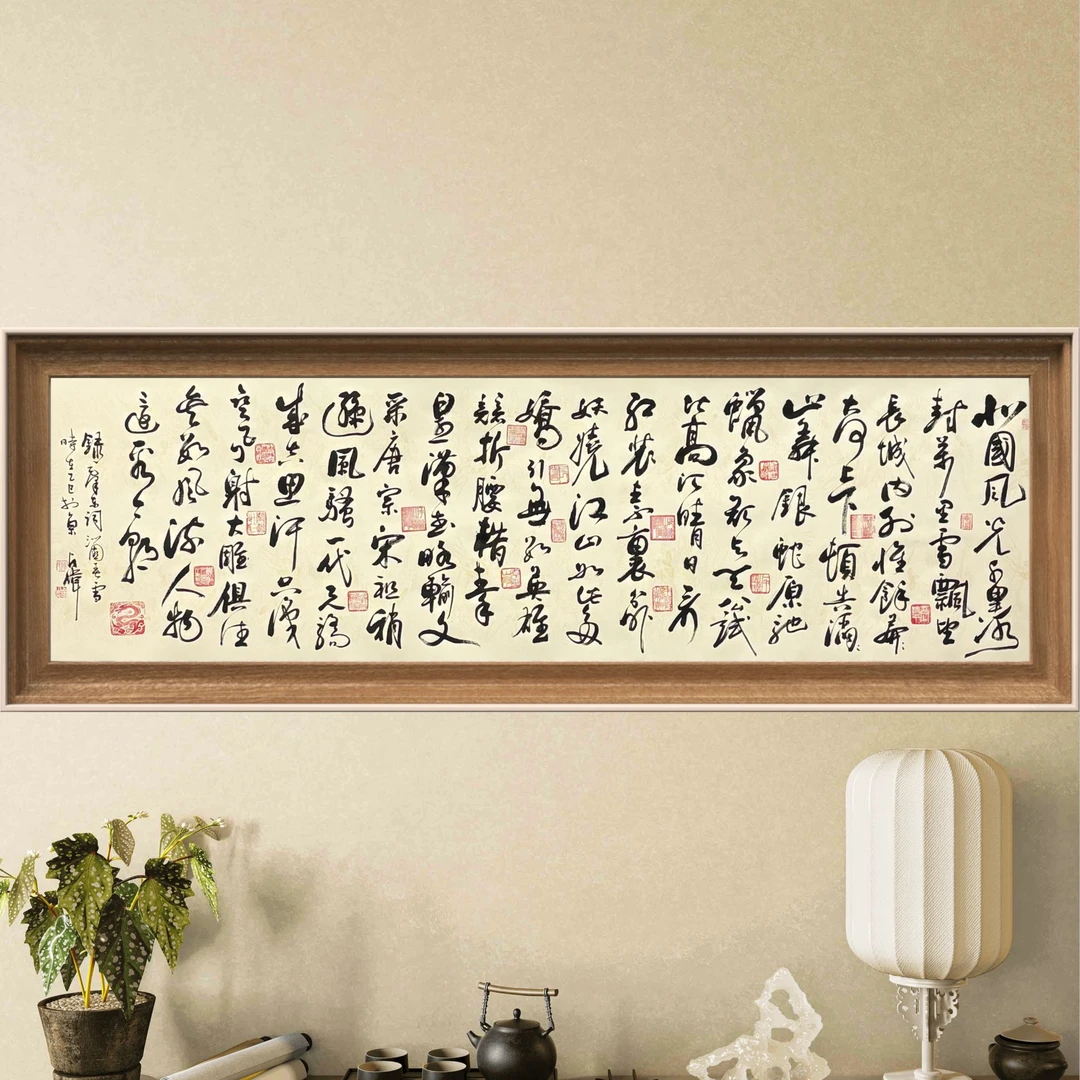 北國風光千里冰
封萬里雪飄望
長城内外惟餘莽〻
大河上下頓失滔〻
山舞銀蛇原馳
蠟象欲与天公試
比高須晴日看
紅裝素裹分外
妖嬈江山如此多
嬌引無數英雄
競折腰惜秦
皇漢武略輸文
采唐宗宋祖稍
遜風騷一代天驕
成吉思汗只識
彎弓射大雕俱往
矣數風流人物
還看今朝
錄毛澤東詞沁園春雪
時在乙巳初夏偉